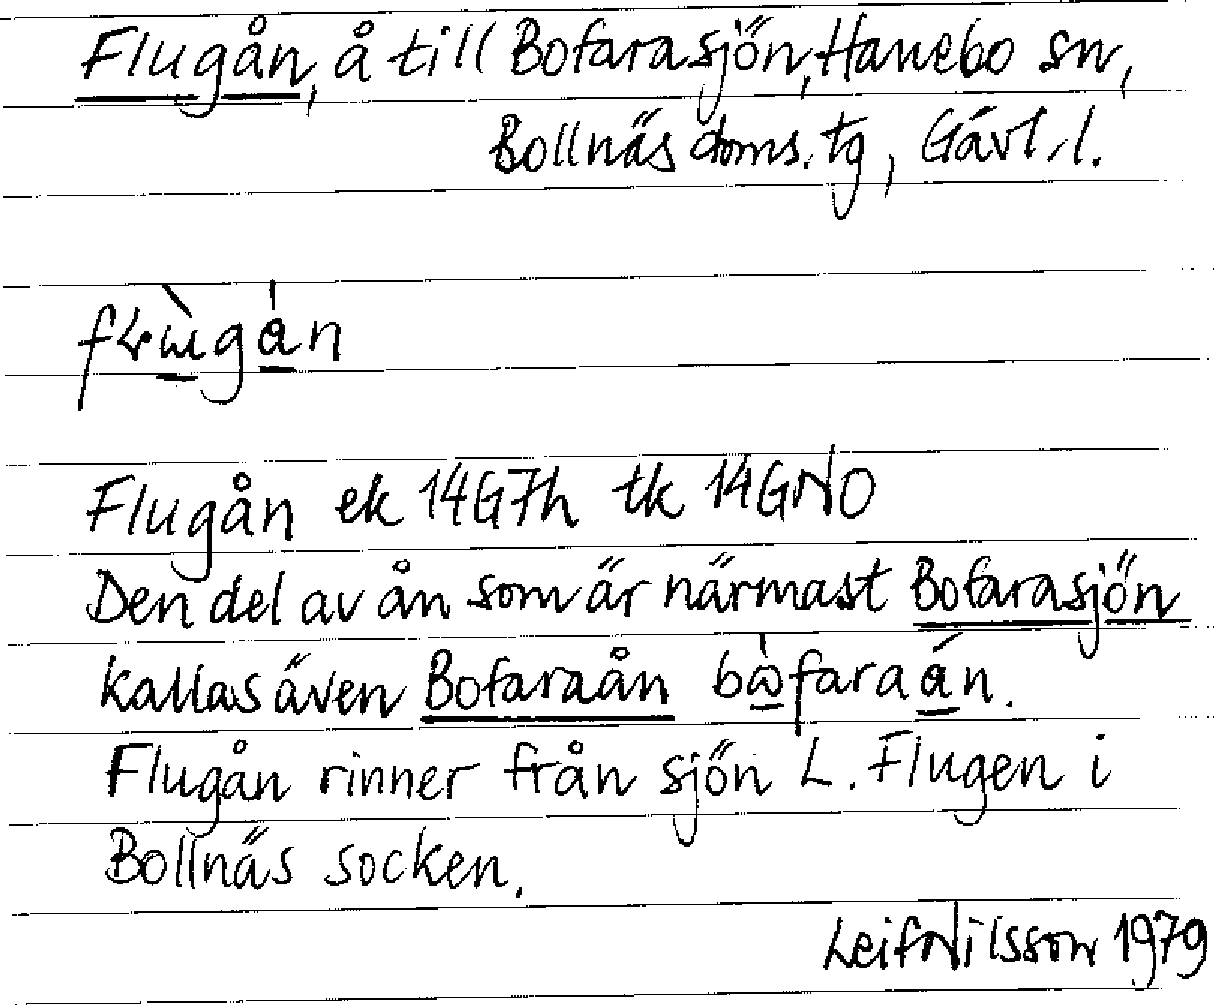 Flugån, å till Bofarasjön, Hanebo sn,
Bollnäs doms. tg, Gävl. l.
Flugån ek 14G7h tk 14GNO
Den del av ån som är närmast Bofarasjön
kallas även Bofaraån bὼfaraán.
Flugån rinner från sjön L. Flugen i
Bollnäs socken.
Leif Nilsson 1979